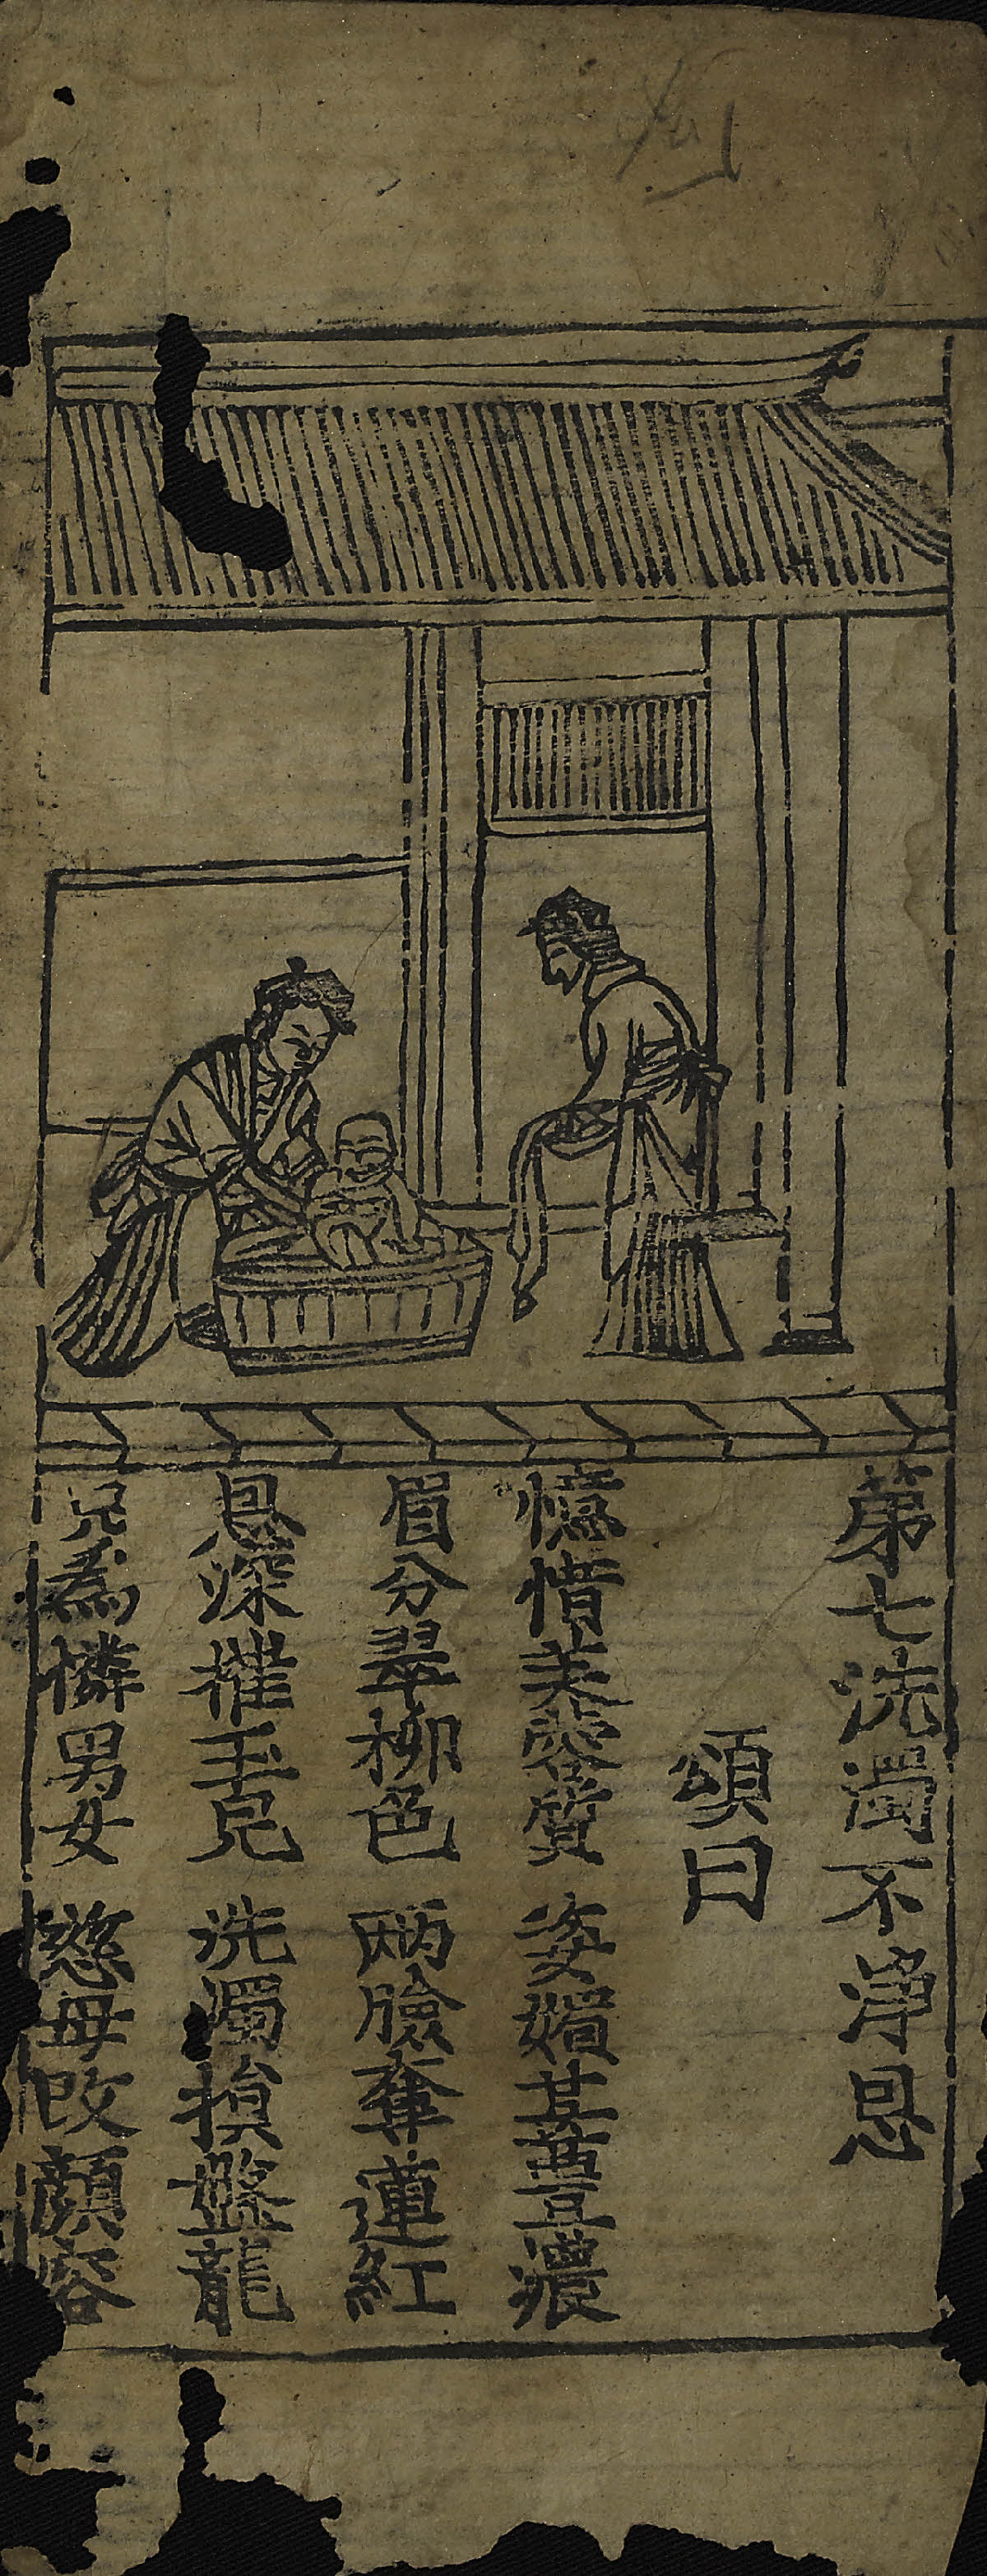 第七洗濁不淨恩
頌曰
憶惜芙蓉質 姿媚甚豊濃
眉分翠柳色 兩臉奪蓮紅
恩深摧玉皃 洗濁損盤龍
只爲憐男女 慈母改顔容